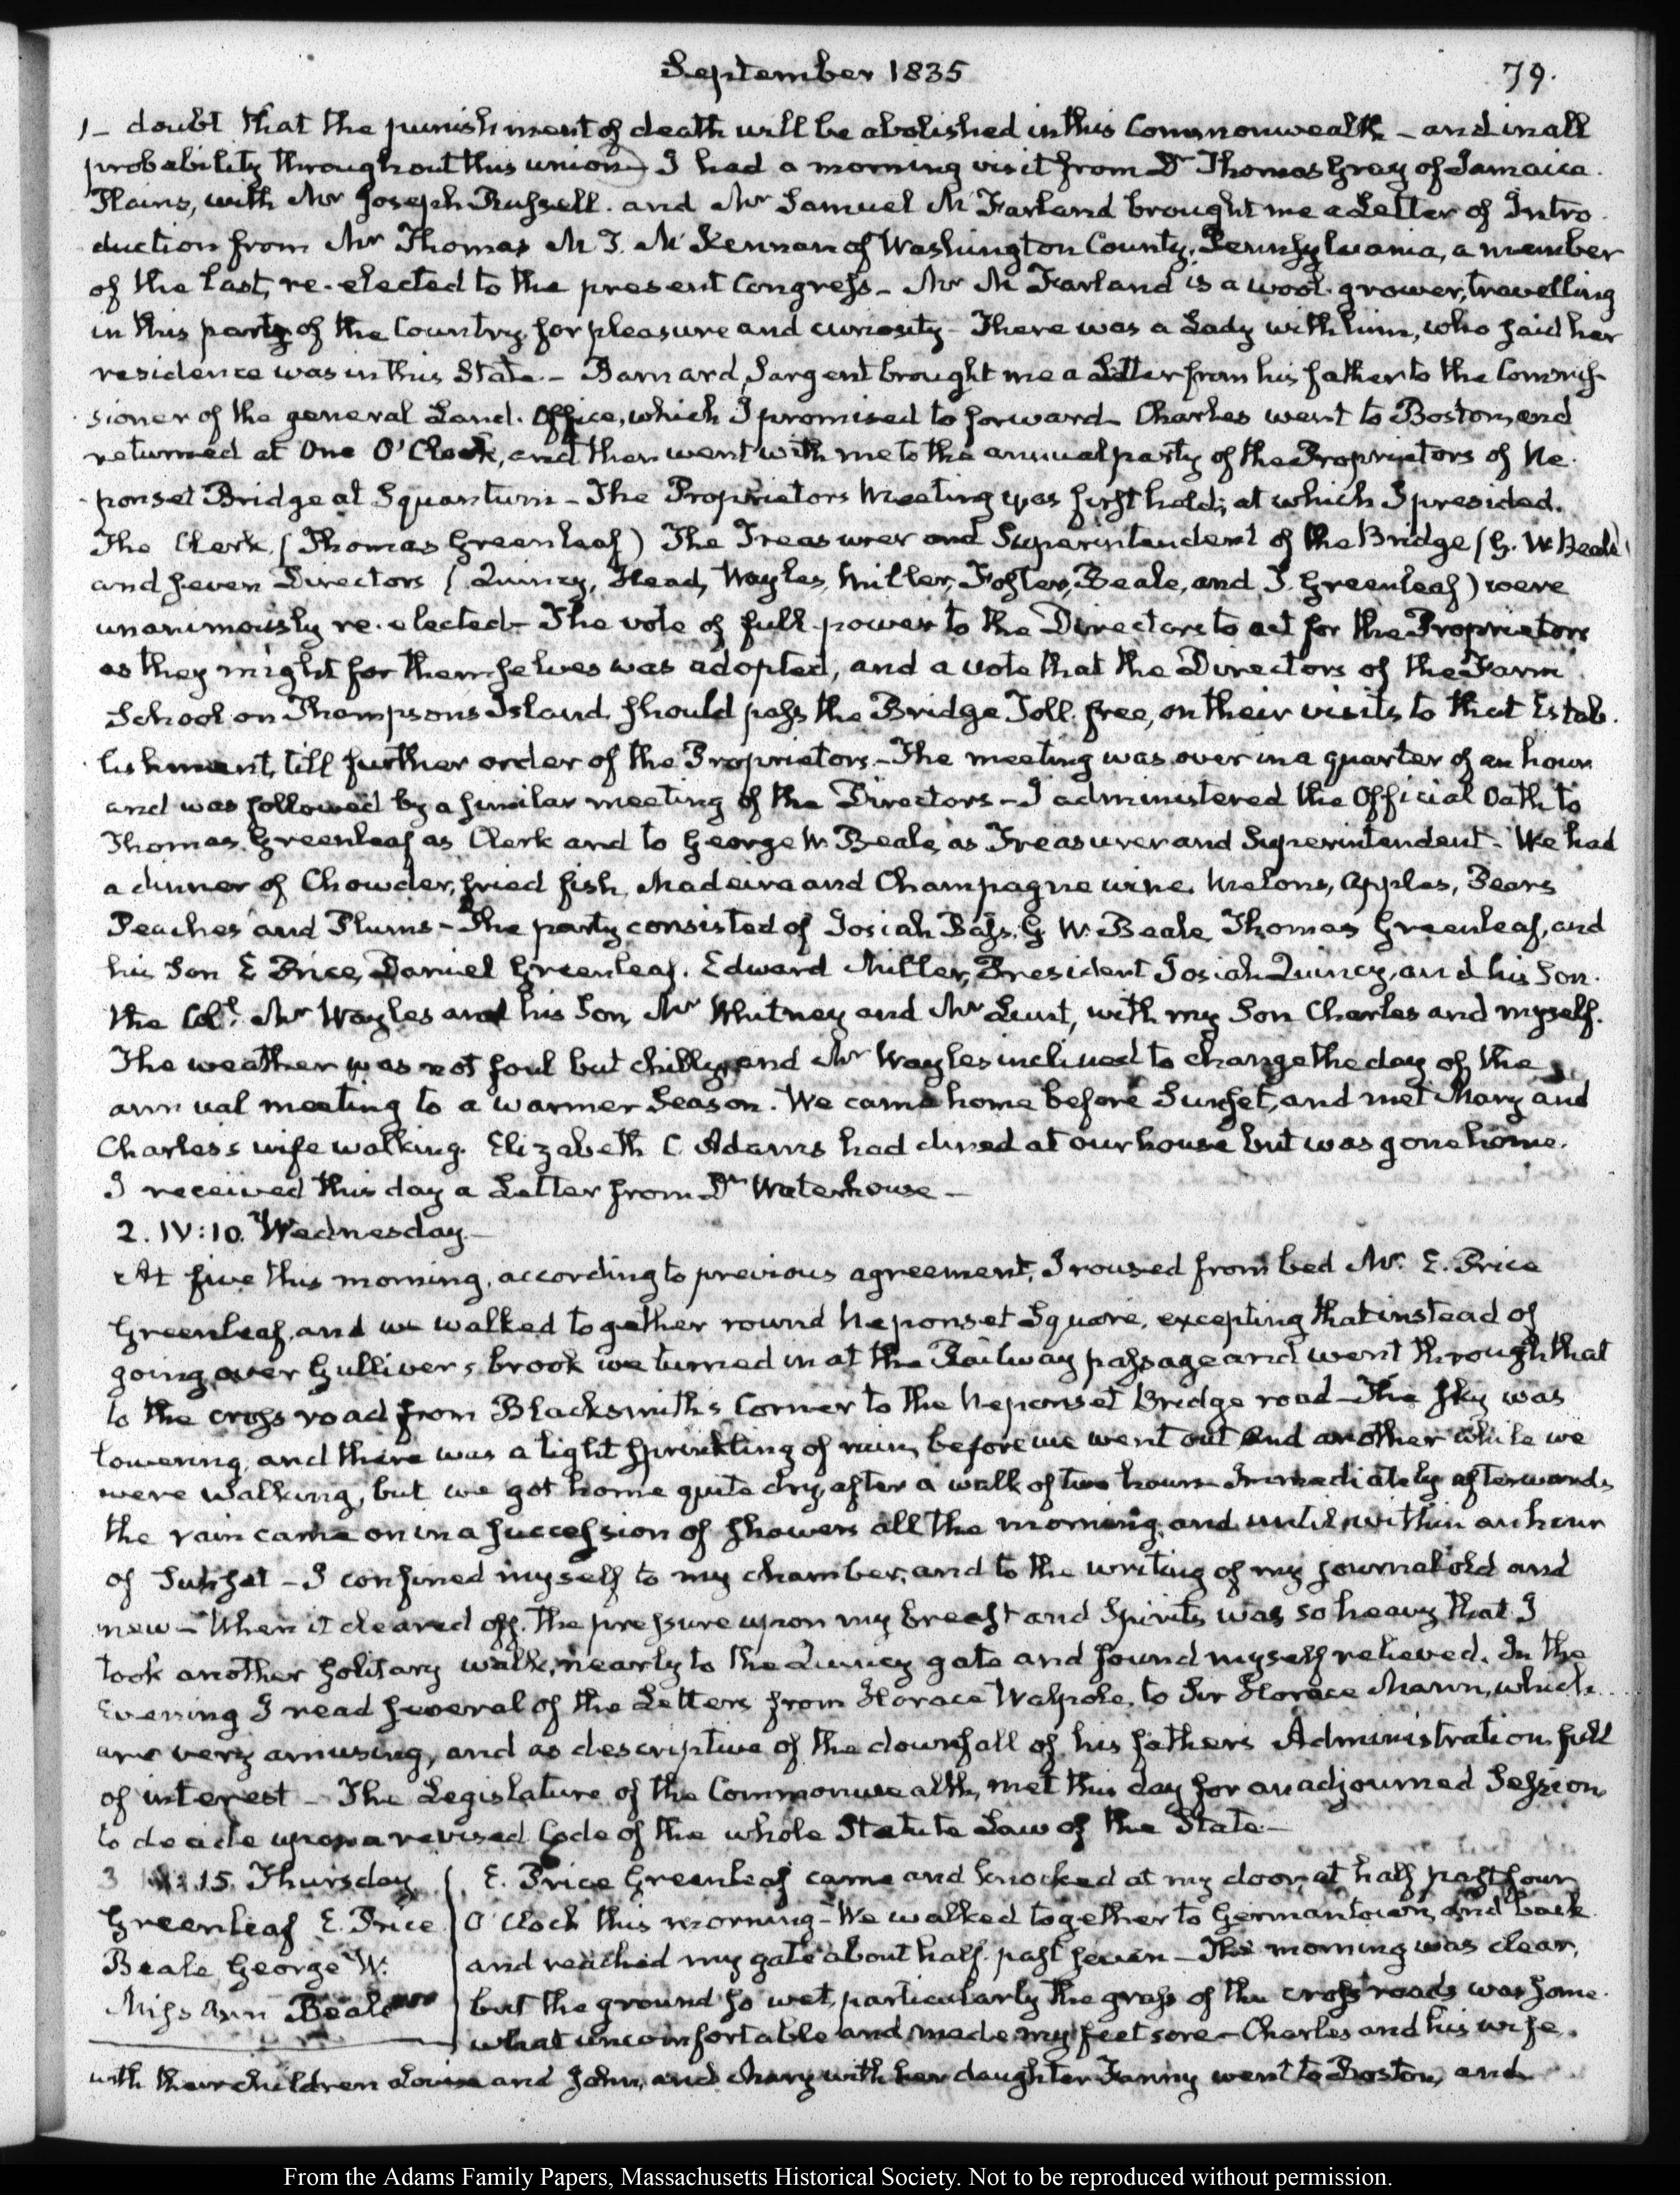 September 1835 79.
1 — doubt that the punishment of death will be abolished in this Commonwealth — and in all
probability throughout this union — I had a morning visit from Dr Thomas Gray of Jamaica
Plains, with Mr Joseph Russell. and Mr Samuel McFarland brought me a Letter of Intro
duction from Mr Thomas M. T. McKennan of Washington County, Pennsylvania, a member
of the last, re-elected to the present Congress — Mr McFarland is a wool-grower, travelling
in this party of the Country for pleasure and curiosity — There was a Lady with him, who said her
residence was in this State — Barnard Sargent brought me a Letter from his father to the Commis-
sioner of the general Land-Office, which I promised to forward — Charles went to Boston, and
returned at One O'Clock, and then went with me to the annual party of the Proprietors of Ne-
ponset Bridge at Squantum — The Proprietors Meeting was first held; at which I presided.
The Clerk (Thomas Greenleaf) The Treasurer and Superintendent of the Bridge (G. W. Beale)
and seven Directors (Quincy, Head, Wayles, Miller, Foster, Beale, and T. Greenleaf) were
unanimously re-elected — The vote of full power to the Directors to act for the Proprietors
as they might for themselves was adopted, and a vote that the Directors of the Farm
School on Thompsons Island, should pass the Bridge Toll-free, on their visits to that Estab-
lishment, till further order of the Proprietors — The meeting was over in a quarter of an hour
and was followed by a similar meeting of the Directors — I administered the Official Oath to
Thomas Greenleaf as Clerk and to George W. Beale, as Treasurer and Superintendent — We had
a dinner of Chowder, fried fish, Madeira and Champagne wine, Melons, Apples, Pears
Peaches and Plums — The party consisted of Josiah Bass, G. W. Beale, Thomas Greenleaf, and
his Son E Price, Daniel Greenleaf, Edward Miller, President Josiah Quincy, and his Son
the Coll. Mr Wayles and his Son, Mr Whitney and Mr Lunt, with my Son Charles and myself.
The weather was not foul but chilly, and Mr Wayles inclined to change the day of the
annual meeting to a warmer Season. We came home before Sunset, and met Mary and
Charles's wife walking. Elizabeth C Adams had dined at our house but was gone home.
I received this day a Letter from Dr Waterhouse —
2. IV:10. Wednesday —
At five this morning, according to previous agreement, I roused from bed Mr. E. Price
Greenleaf, and we walked together round Neponset Square, excepting that instead of
going over Gulliver's brook we turned in at the Railway passage and went through that
to the cross road from Blacksmith's Corner to the Neponset Bridge road — The sky was
lowering, and there was a light sprinkling of rain, before we went out and another while we
were walking, but we got home quite dry, after a walk of two hours — Immediately afterwards
the rain came on in a succession of showers all the morning, and until within an hour
of Sunset — I confined myself to my chamber, and to the writing of my journal old and
new — When it cleared off, the pressure upon my breast and Spirits was so heavy that I
took another solitary walk, nearly to the Quincy gate and found myself relieved. In the
Evening I read several of the Letters from Horace Walpole, to Sir Horace Mann, which
are very amusing, and as descriptive of the downfall of his father's Administration full
of interest — The Legislature of the Commonwealth, met this day for an adjourned Session
to decide upon a revised Code of the whole Statute Law of the State —
3 15. Thursday
Greenleaf E. Price
Beale George W.
Miss Ann Beale
E. Price Greenleaf came and knocked at my door, at half past four
O'Clock this morning — We walked together to Germantown, and back
and reached my gate about half past seven — The morning was clear,
but the ground so wet, particularly the grass of the cross roads was some-
what uncomfortable and made my feet sore — Charles and his wife,
with their children Louisa and John, and Mary with her daughter Fanny went to Boston, and
From the Adams Family Papers, Massachusetts Historical Society. Not to be reproduced without permission.